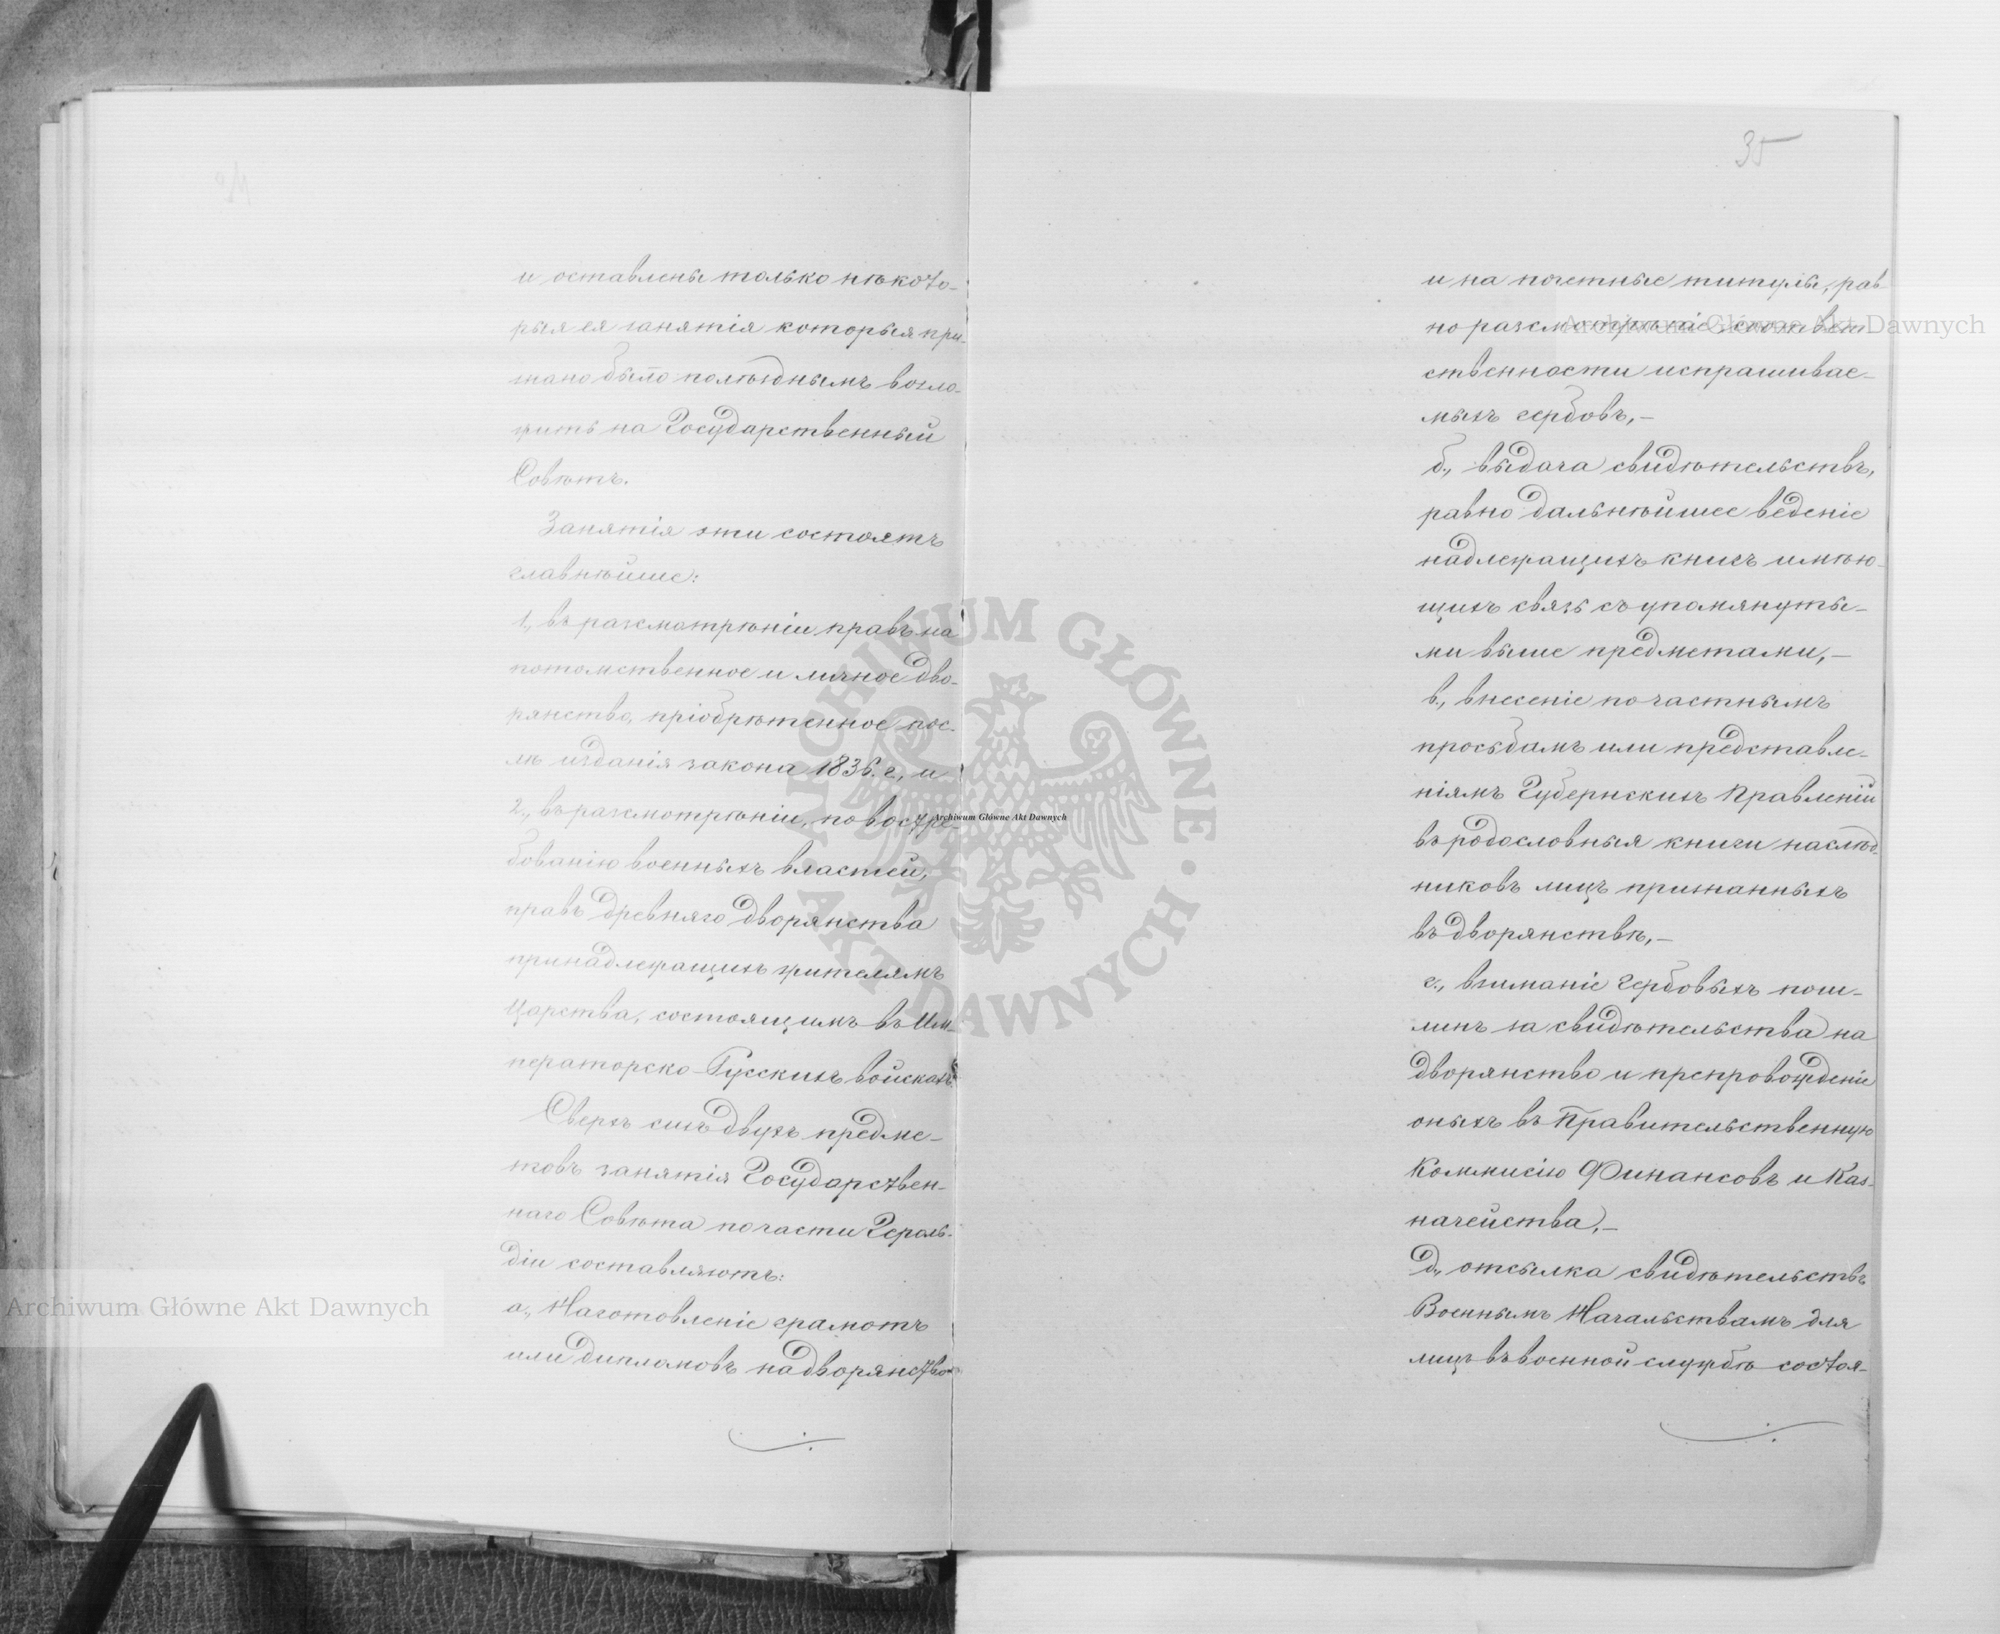 и оставлены только нѣкото-
рыя ея занятія которыя при-
знано было полѣзнымъ возло-
жить на Государственный
Совѣтъ.
Занятія эти состоятъ
главнѣйше:
1., въ разсмотрѣніи правъ на
потомственное и личное дво-
рянство, пріобрѣтенное пос-
лѣ изданія закона 1836. г., и
2., въ разсмотрѣніи, по востре-
бованію военныхъ властей,
правъ древняго дворянства
принадлежащихъ жителямъ
Царства, состоящимъ въ Им-
ператорско-Русскихъ войскахъ
Сверхъ сихъ двухъ предме-
товъ занятія Государствен-
наго Совѣта по части Героль-
діи составляютъ:
а., Изготовленіе грамотъ
или дипломовъ на дворянство
35
и на почетные титулы, рав-
но разсмотрѣніе соотвѣт
ственности испрашивае-
мыхъ гербовъ,-
б., выдача свидѣтельствъ,
равно дальнѣйшее веденіе
надлежащихъ книгъ имѣю-
щихъ связь съ упомянуты-
ми выше предметами,-
в., внесеніе по частнымъ
просьбамъ или представле-
ніямъ Губернскихъ Правленій
въ родословныя книги наслѣд-
никовъ лицъ признанныхъ
въ дворянствѣ,-
г., взиманіе гербовыхъ пош-
линъ за свидѣтельства на
дворянство и препровожденіе
оныхъ въ Правительственную
Коммисію Финансовъ и Каз-
начейства,-
д., отсылка свидѣтельствъ
Военнымъ Начальствамъ для
лицъ въ военной службѣ состоя-
Archiwum Główne Akt Dawnych
Archiwum Główne Akt Dawnych
Archiwum Główne Akt Dawnych
ARCHIWUM GŁÓWNE · AKT DAWNYCH ·